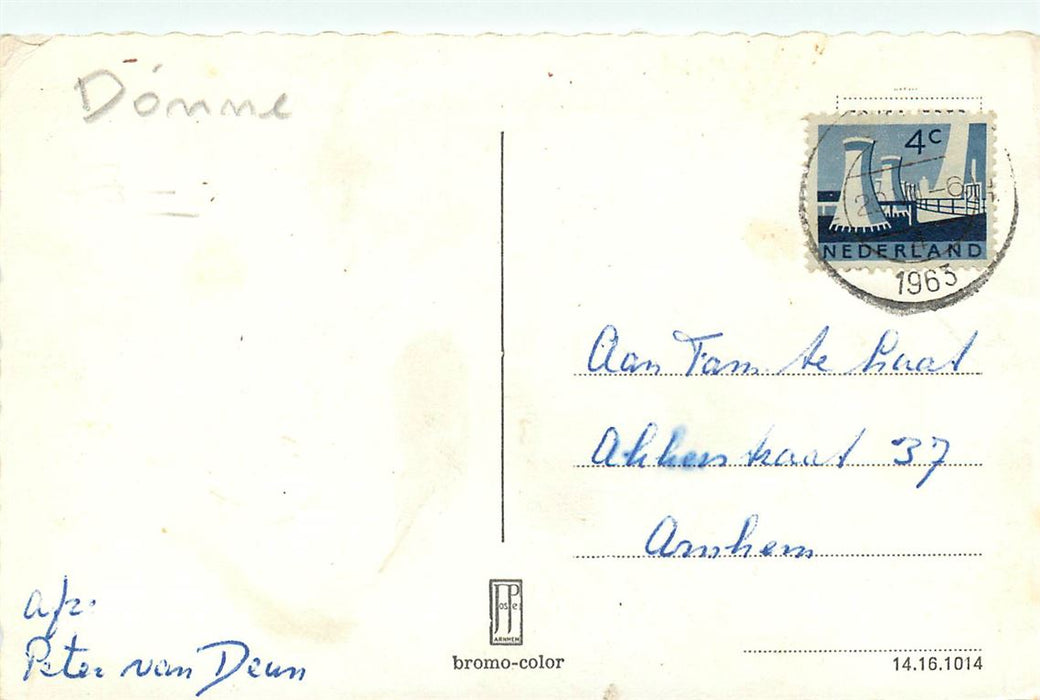 Dónne
4c
NEDERLAND
1963
Aan Fam. te
Akkerstraat 37
Arnhem
afz.
Peter van Deun
JosPe
ARNHEM
bromo-color
14.16.1014